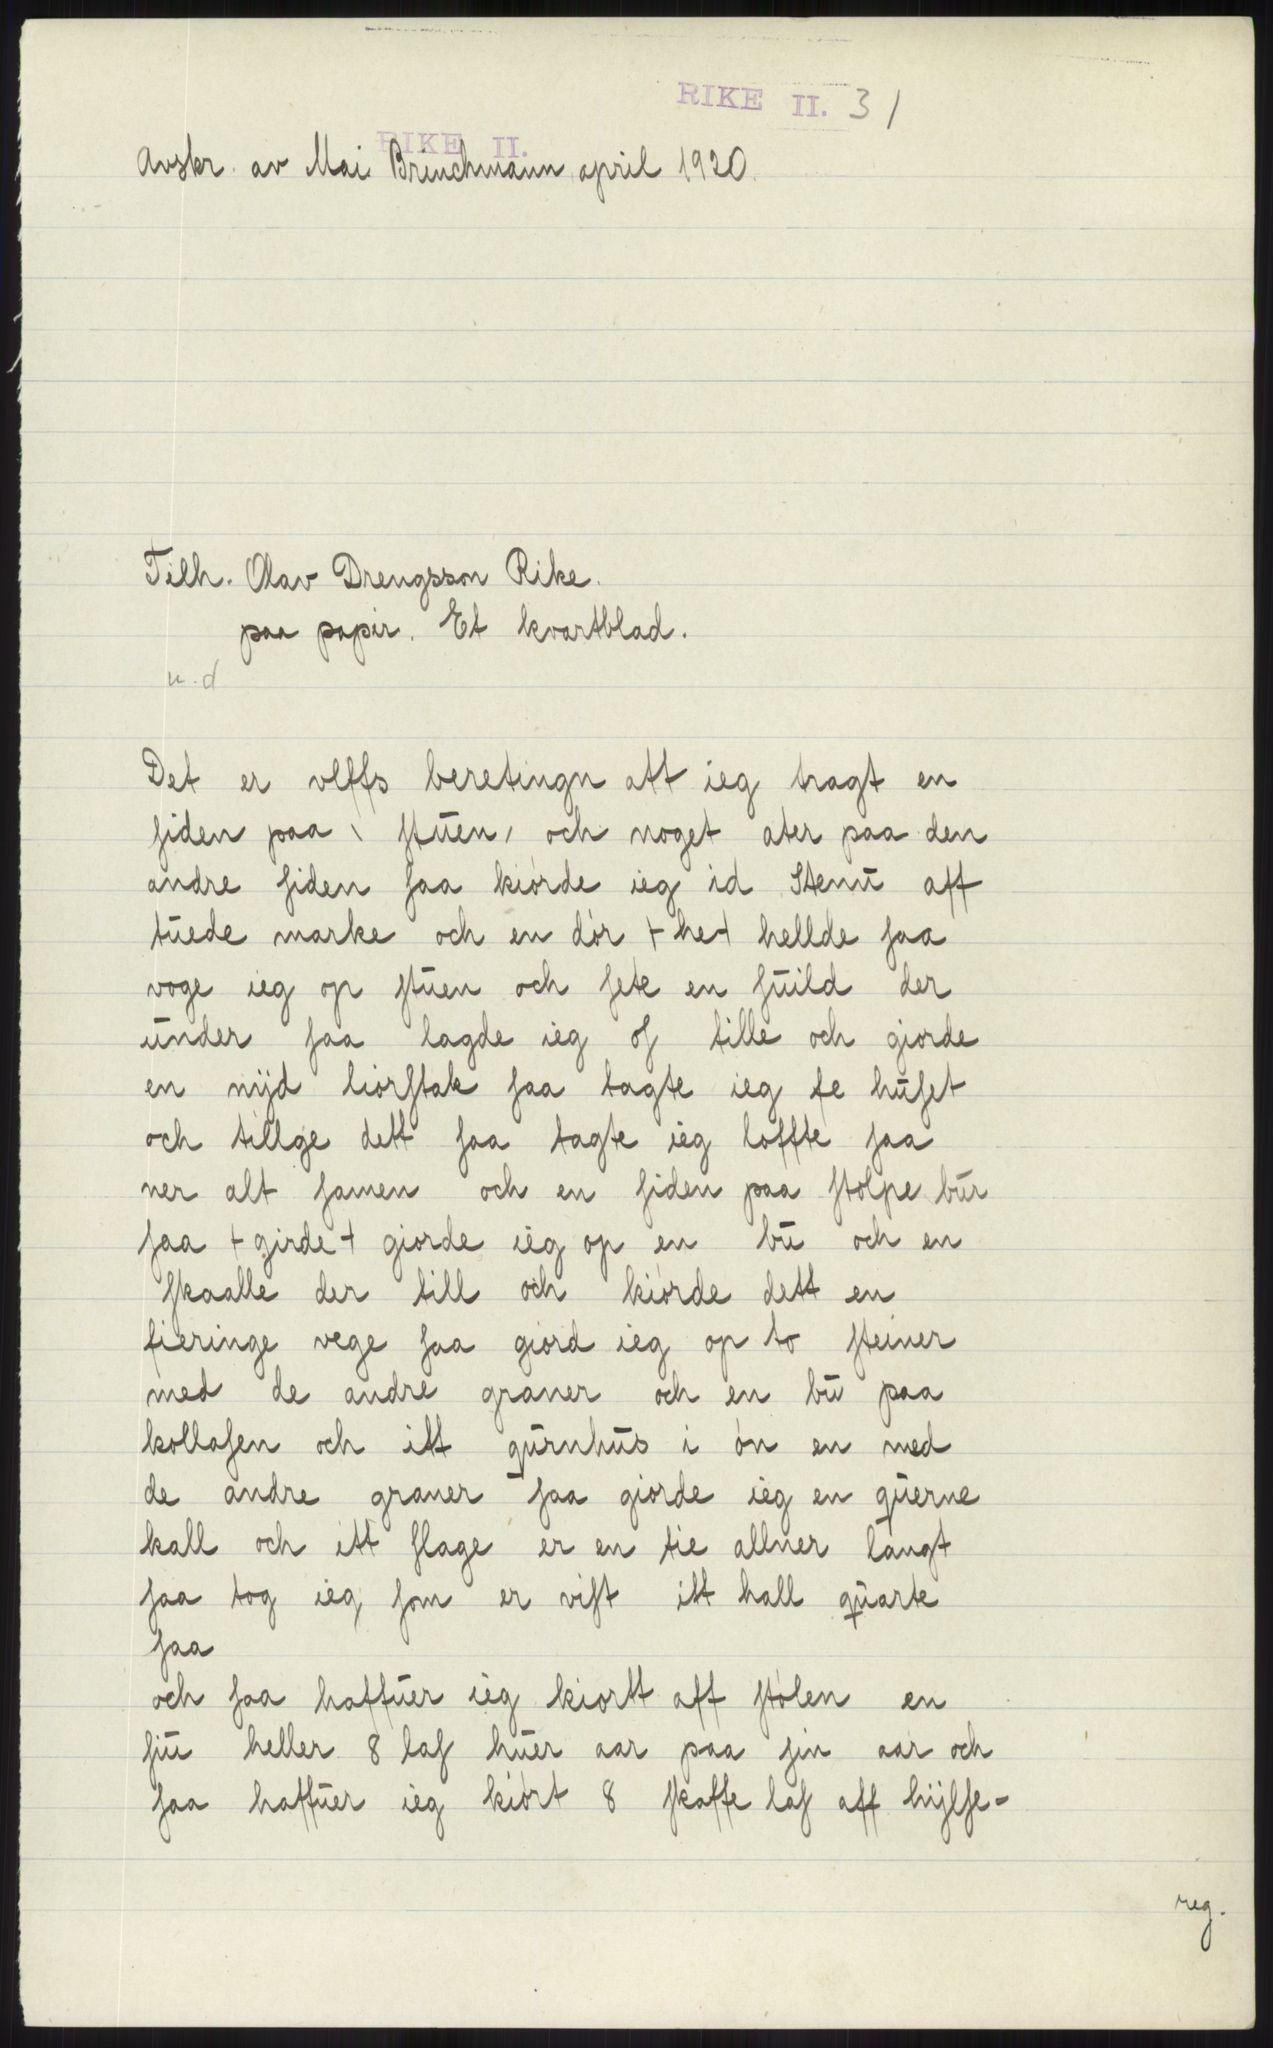 RIKE II. 31
RIKE II.
Avskr. av Mai Brinchmann april 1920.
Tilh. Olav Drengsson Rike.
paa papir. Et kvartblad.
u.d
Det er vlffs beretingn att ieg tragt en
ſiden paa \ ſtuen, och noget ater paa den
andre ſiden ſaa kiórde ieg id Stenū aff
tūede marke och en dór + he + hellde ſaa
voge ieg op ſtūen och ſete en ſūild der
ūnder ſaa lagde ieg oſ tille och giorde
en nÿd liorſtak ſaa tagte ieg te hūſet
och tillge dett ſaa tagte ieg loffte ſaa
ner alt ſamen och en ſiden paa ſtolpe būr
ſaa + girde + giorde ieg op en bū och en
ſkaalle der till och kiórde dett en
fieringe vege ſaa giord ieg op to ſteiner
med de andre graner och en bū paa
kollaſen och itt qūrnhūs i ón en med
de andre graner ſaa giorde ieg en qūerne
kall och itt ſlage er en tie allner langt
ſaa tog ieg ſom er viſt itt hall qūarte
ſaa
och ſaa haffūer ieg kiortt aff ſtólen en
ſiū heller 8 laſ hūer aar paa ſin aar och
ſaa haffūer ieg kiórt 8 ſkaffe laſ aff hÿlſe-
reg.